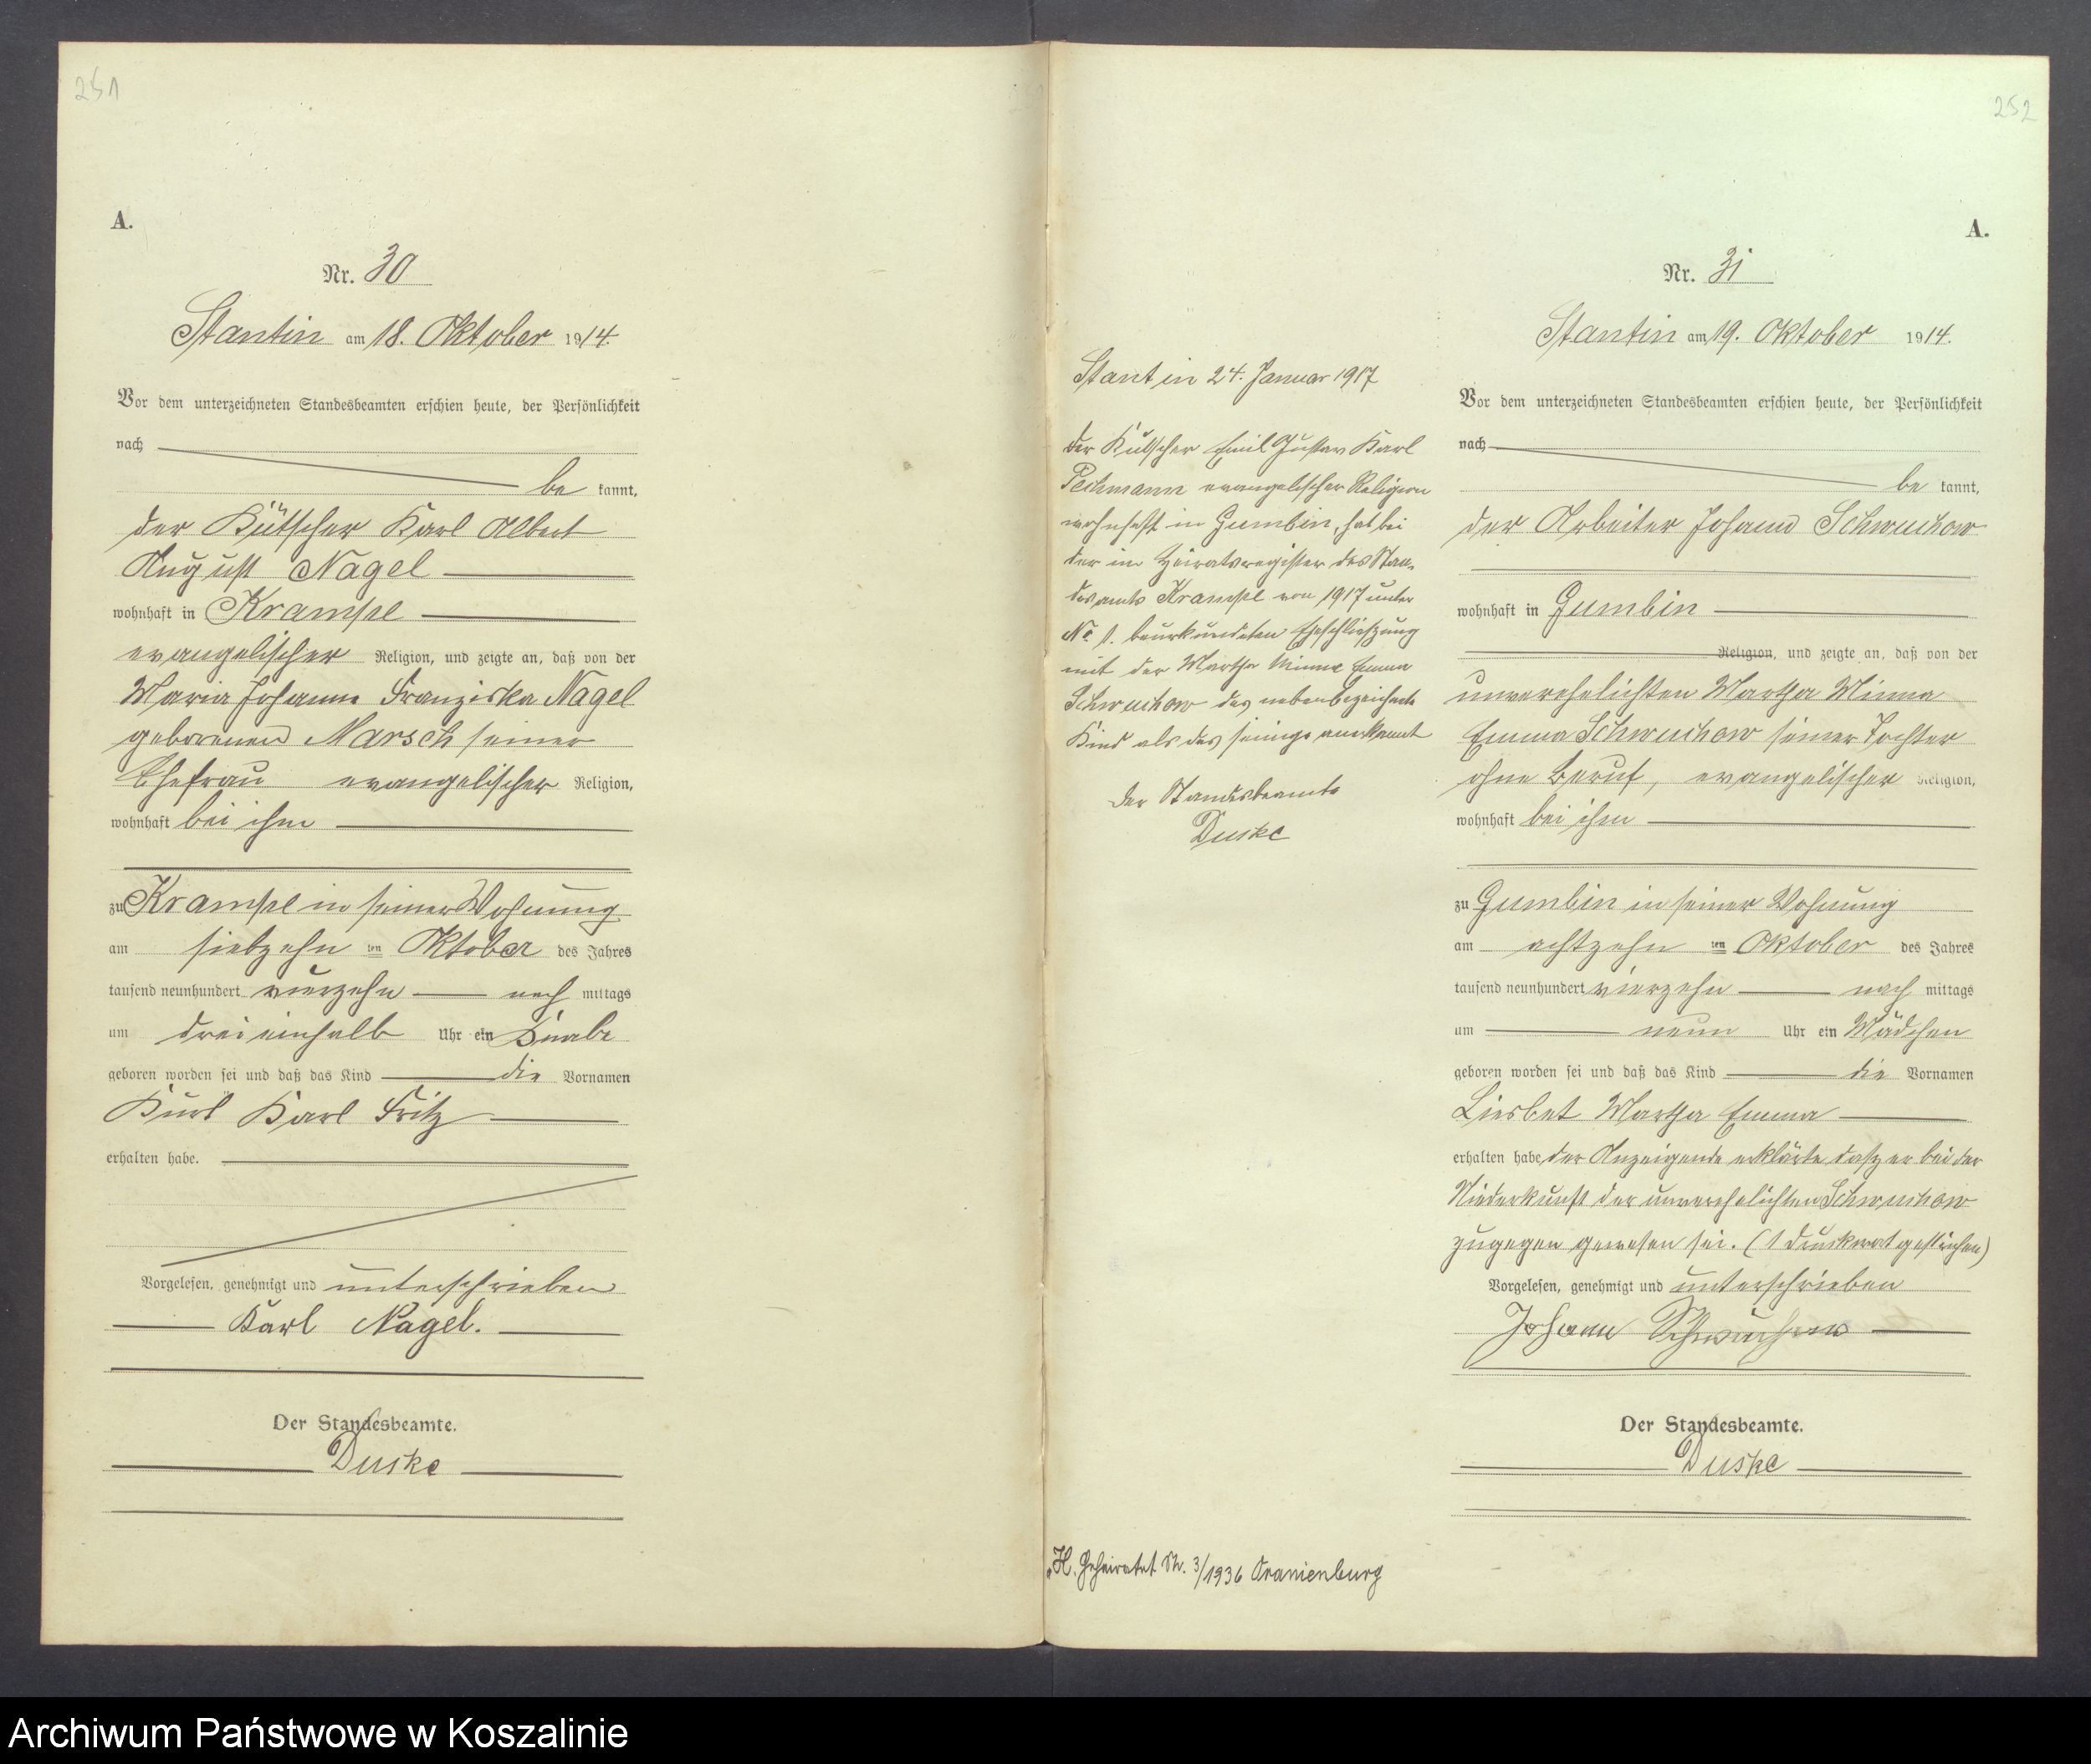 251
A.
Nr. 30
Stantin am 18. Oktober 1914.
Vor dem unterzeichneten Standesbeamten erschien heute, der Persönlichkeit
nach
be kannt,
der Kutscher Karl Albert
August Nagel
wohnhaft in Krampe
evangelischer Religion, und zeigte an, daß von der
Maria Johanne Franziska Nagel
geborenen Marsch seiner
Ehefrau evangelischer Religion,
wohnhaft bei ihm
zu Krampe in seiner Wohnung
am siebzehn ten Oktober des Jahres
tausend neunhundert vierzehn nach mittags
um drei einhalb Uhr ein Knabe
geboren worden sei und daß das Kind die Vornamen
Kurt Karl Fritz
erhalten habe.
Vorgelesen, genehmigt und unterschrieben
Karl Nagel.
Der Standesbeamte.
Duske
252
A.
Nr. 31
Stantin am 19. Oktober 1914.
Vor dem unterzeichneten Standesbeamten erschien heute, der Persönlichkeit
nach
be kannt,
der Arbeiter Johann Schwuchow
wohnhaft in Gumbin
Religion, und zeigte an, daß von der
unverehelichten Martha Minna
Emma Schwuchow seiner Tochter
ohne Beruf, evangelischer Religion,
wohnhaft bei ihm
zu Gumbin in seiner Wohnung
am achtzehn ten Oktober des Jahres
tausend neunhundert vierzehn nach mittags
um neun Uhr ein Mädchen
geboren worden sei und daß das Kind die Vornamen
Liesbet Martha Emma
erhalten habe, der Anzeigende erklärte daß er bei der
Niederkunft der unverehelichten Schwuchow
zugegen gewesen sei. (1 Druckwort gestrichen)
Vorgelesen, genehmigt und unterschrieben
Johann Schwuchow
Der Standesbeamte.
Duske
Stantin 24. Januar 1917
der Kutscher Emil Gustav Karl
Pechmann evangelischer Religion
wohnhaft in Gumbin, hat bei
der im Heiratsregister des Stan-
desamts Krampe von 1917 unter
No 1. beurkundeten Eheschließung
mit der Martha Minna Emma
Schwuchow das nebenbezeichnete
Kind als das seinige anerkannt
der Standesbeamte
Duske
H. Geheiratet Nr. 3/1936 Oranienburg
Archiwum Państwowe w Koszalinie